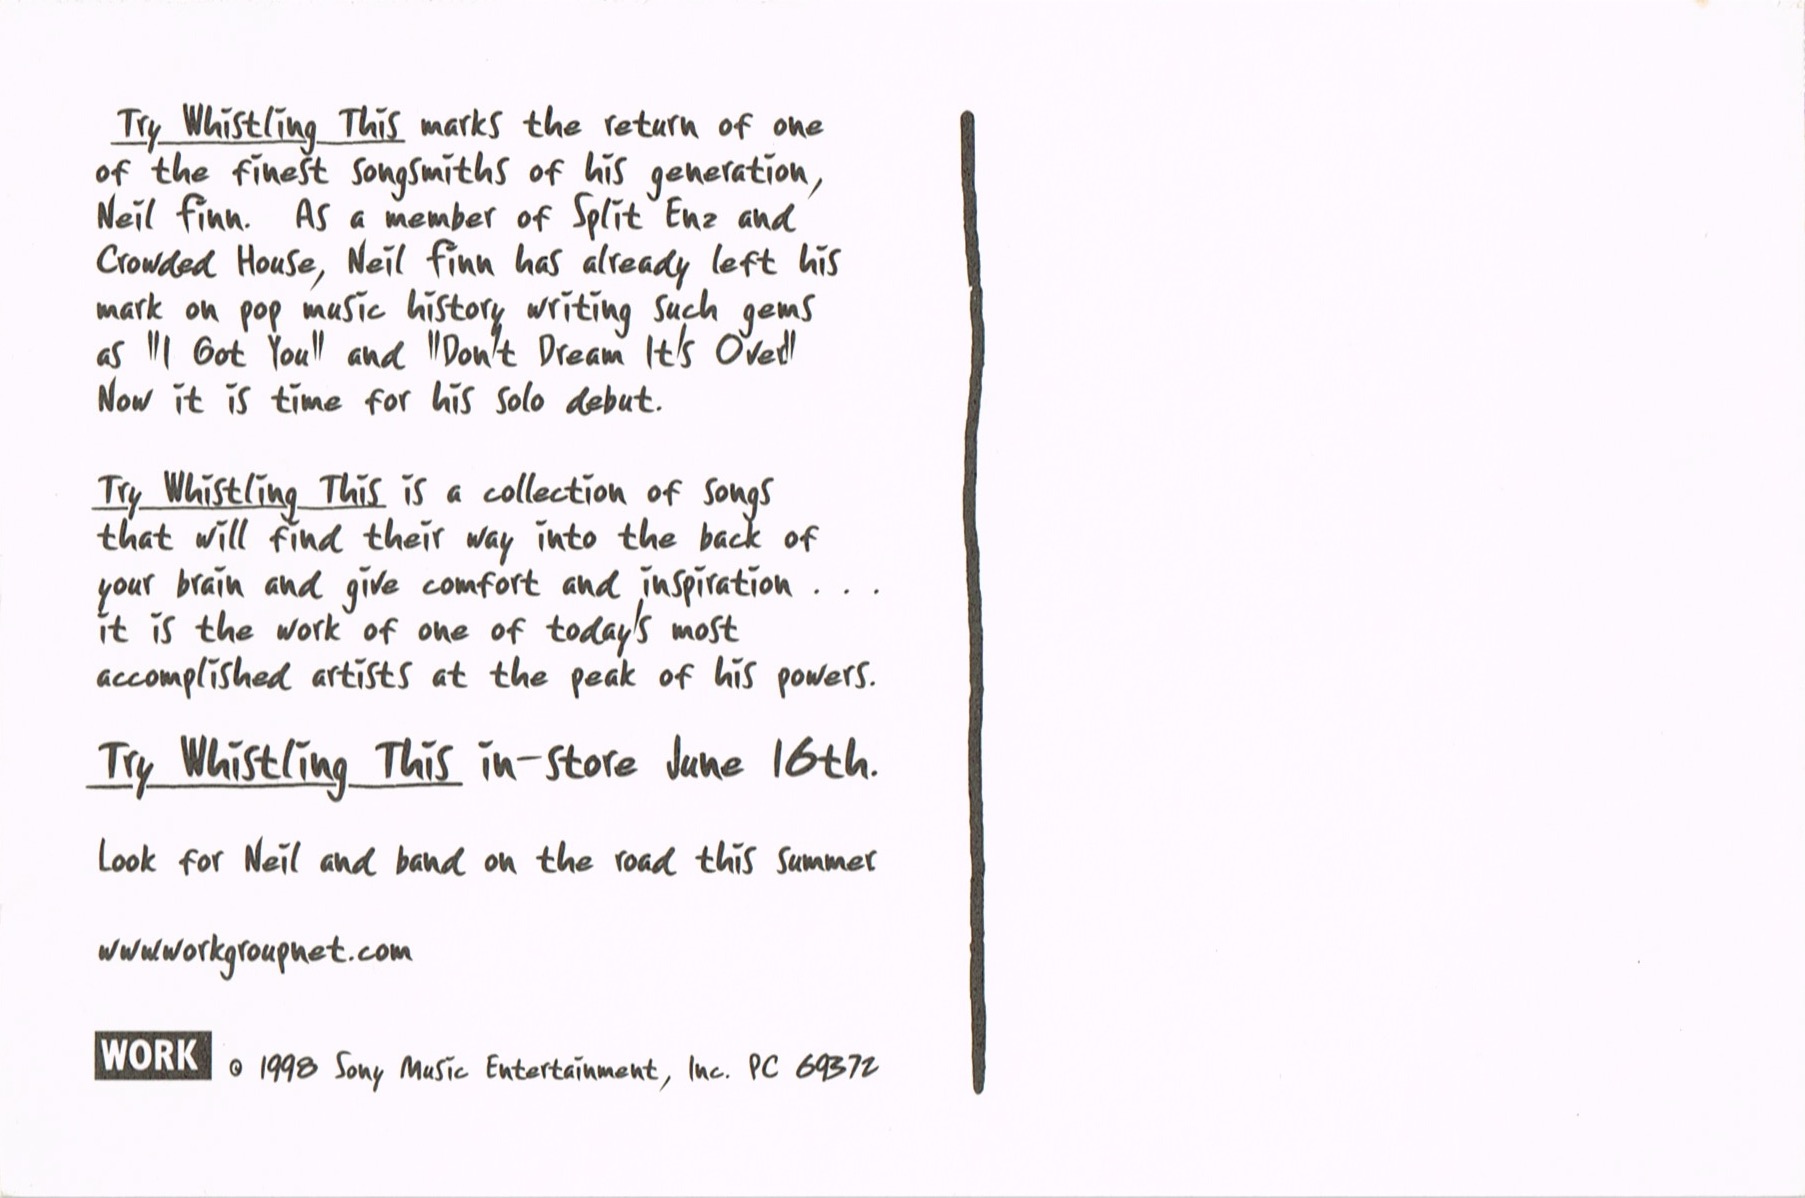 Try Whistling This marks the return of one
of the finest songsmiths of his generation,
Neil Finn. As a member of Split Enz and
Crowded House, Neil Finn has already left his
mark on pop music history writing such gems
as "I Got You" and "Don't Dream It's Over"
Now it is time for his solo debut.
Try Whistling This is a collection of songs
that will find their way into the back of
your brain and give comfort and inspiration . . .
it is the work of one of today's most
accomplished artists at the peak of his powers.
Try Whistling This in-store June 16th.
Look for Neil and band on the road this summer
www.workgroupnet.com
WORK © 1998 Sony Music Entertainment, Inc. PC 69372